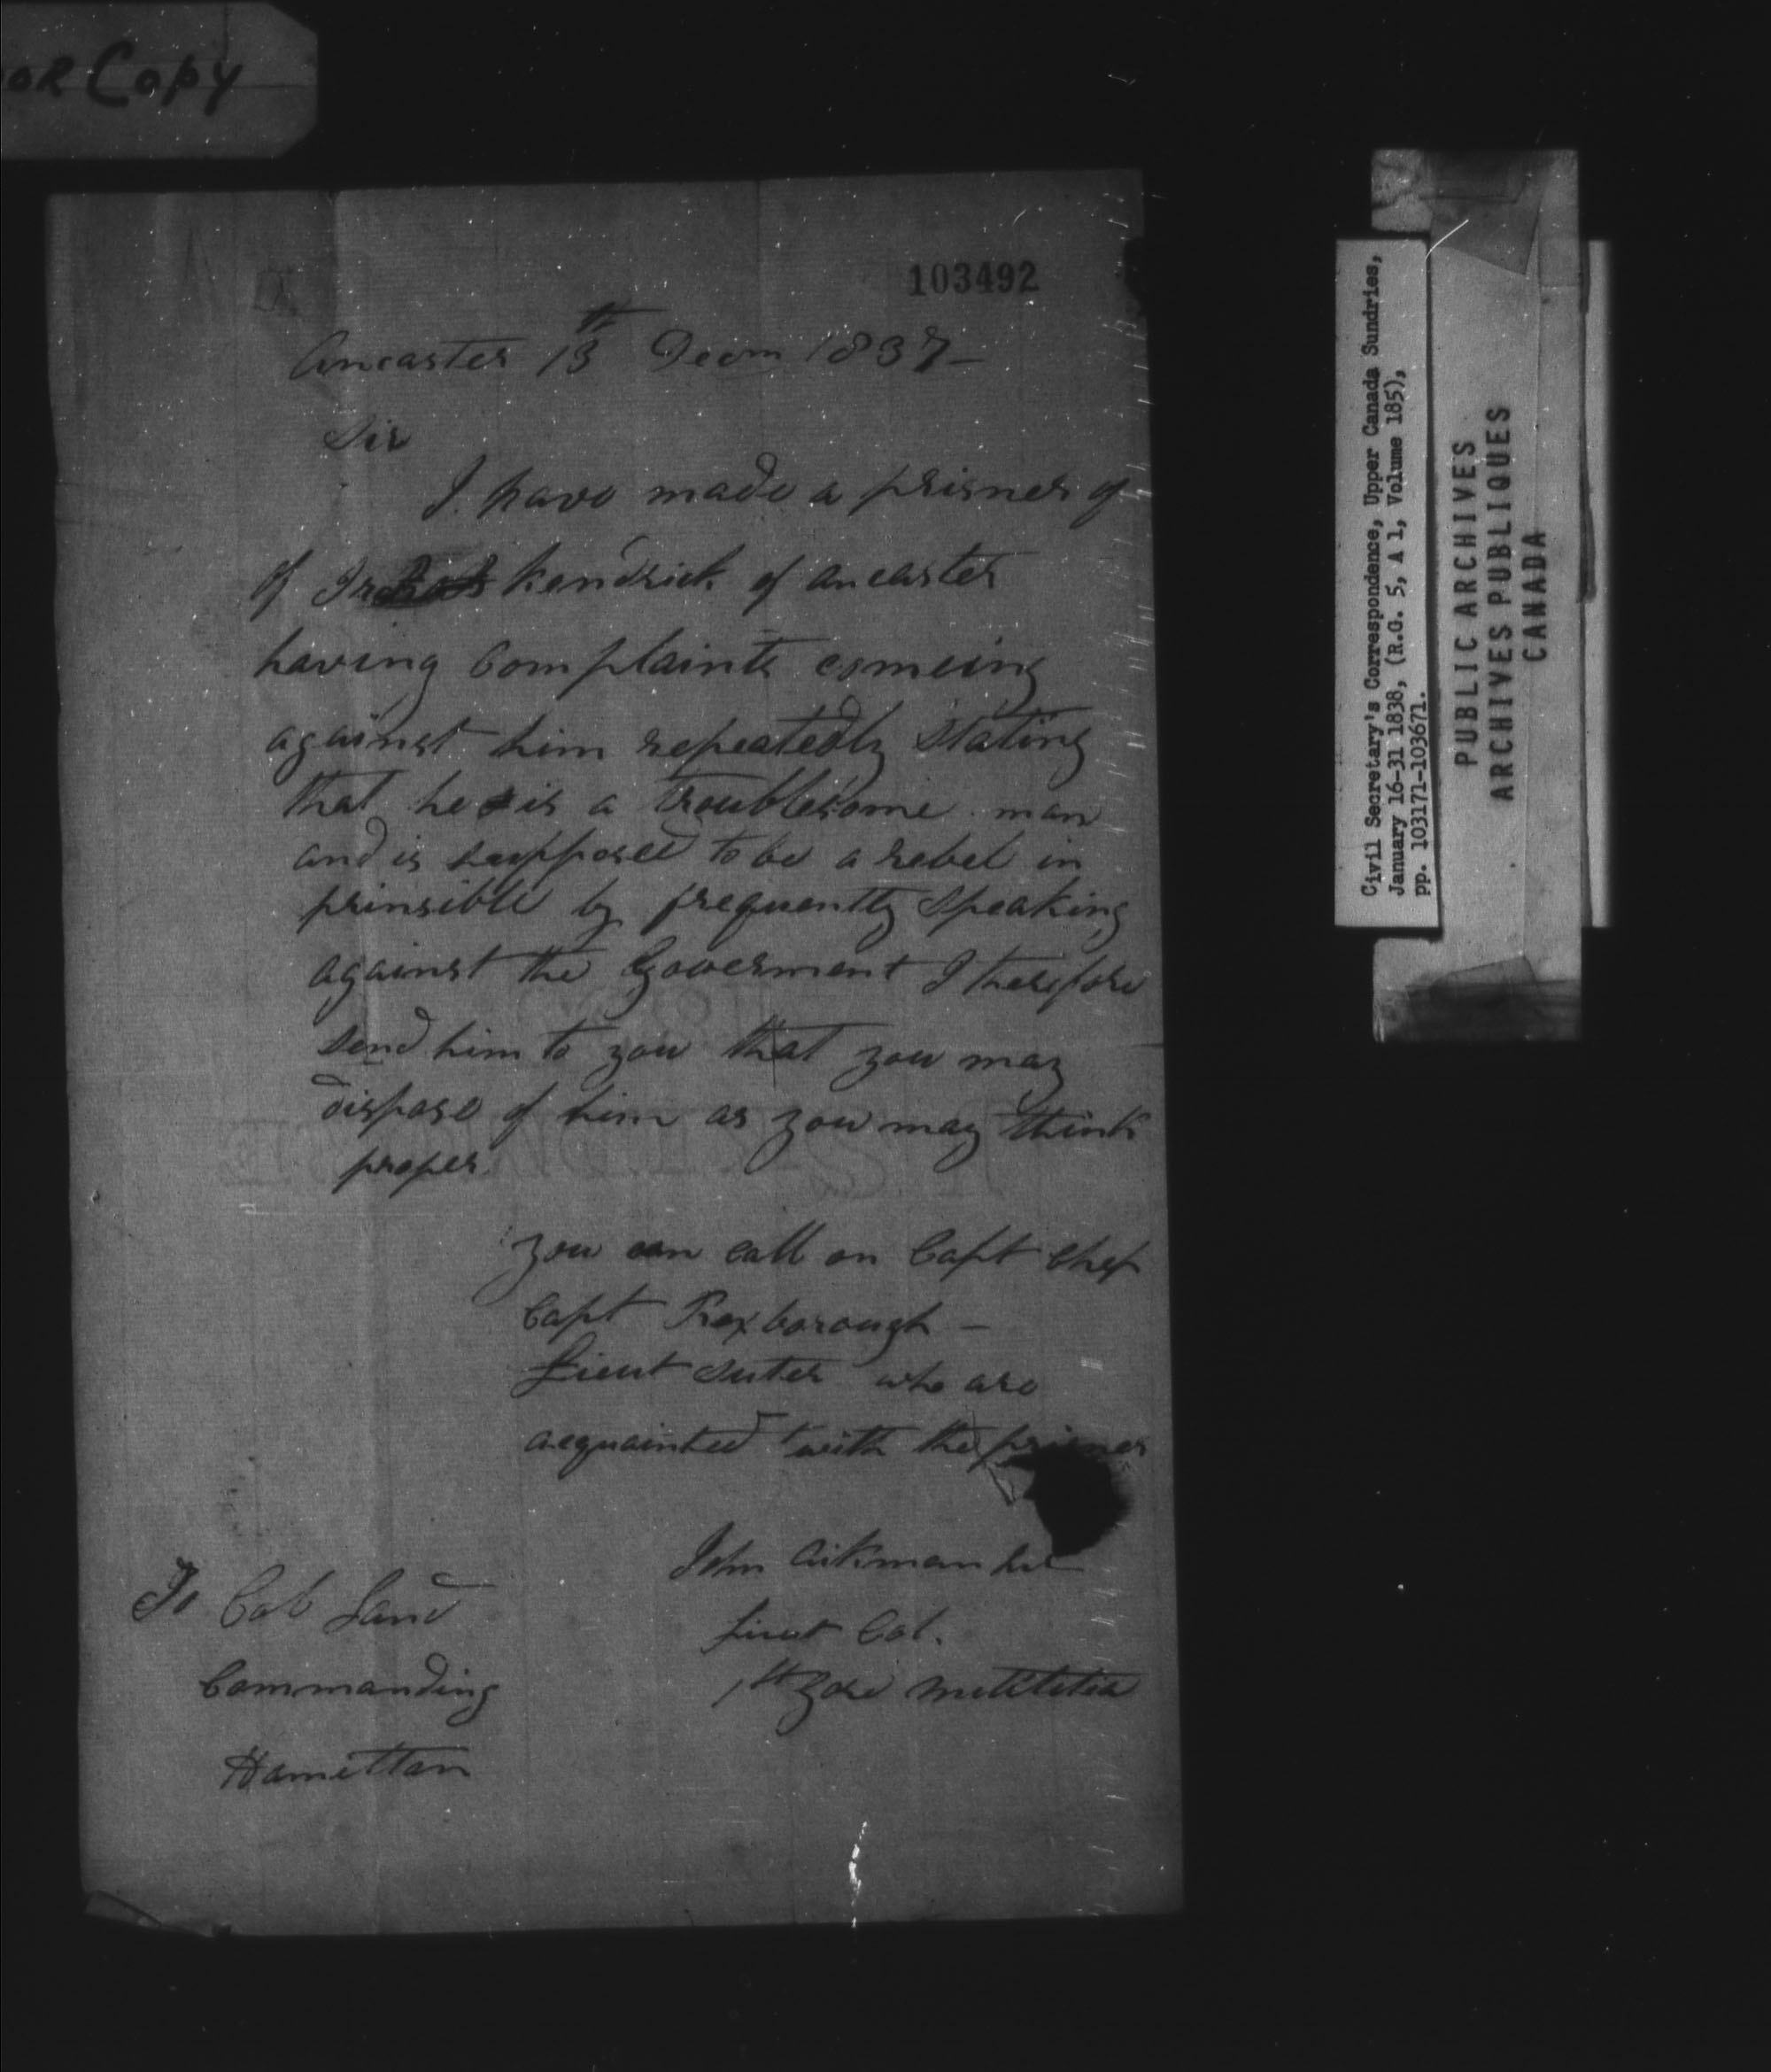 OR Copy
103492
Ancaster 13th Decm 1837 –
Sir
I have made a prisner of
of Kendrick of Ancaster
having Complaints comeing
against him repeatedly Stating
that he is a troublesome man
and is supposed to be a rebel in
prinsible by frequently Speaking
against the Goverment I therefore
send him to you that you may
dispose of him as you may think
proper
you can call on Capt Chep
Capt Roxborough –
Lieut Suter who are
acquainted with the prisner
John Aikman
Lieut Col.
To Col Land
Commanding
Hamilton
Civil Secretary's Correspondence, Upper Canada Sundries,
January 16-31 1838, (R.G. 5, A 1, Volume 185),
pp. 103171-103671.
PUBLIC ARCHIVES
ARCHIVES PUBLIQUES
CANADA